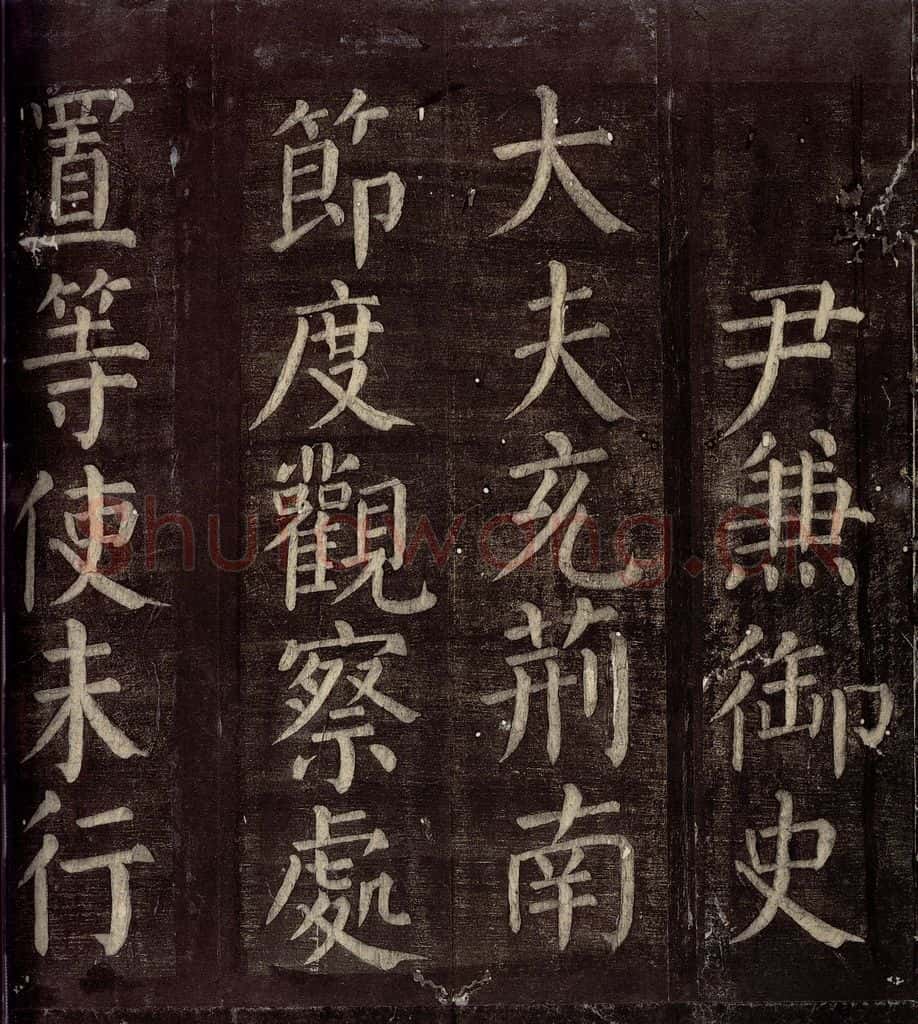 尹兼御史
大夫充荊南
節度觀察處
置等使未行
shufawang.cn